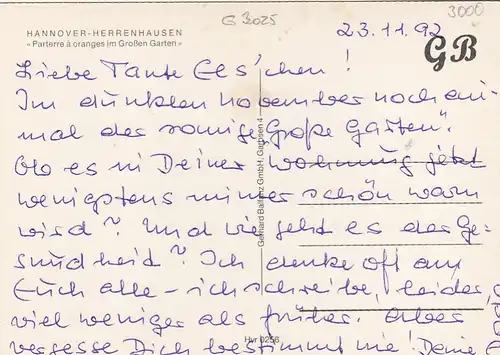 G 3025
3000
HANNOVER-HERRENHAUSEN
»Parterre à oranges im Großen Garten«
23.11.92
GB
Liebe Tante Els'chen!
Im dunklen November noch ein-
mal der sonnige „Große Garten“.
Ob es in Deiner Wohnung jetzt
wenigstens immer schön warm
wird? Und wie geht es der Ge-
sundheid? Ich denke oft an
Euch alle – ich schreibe, leider,
viel weniger als früher. Aber
vergesse Dich bestimmt nie! Deine
Gerhard Ballarz GmbH, Garbsen 4
Hvr 0256